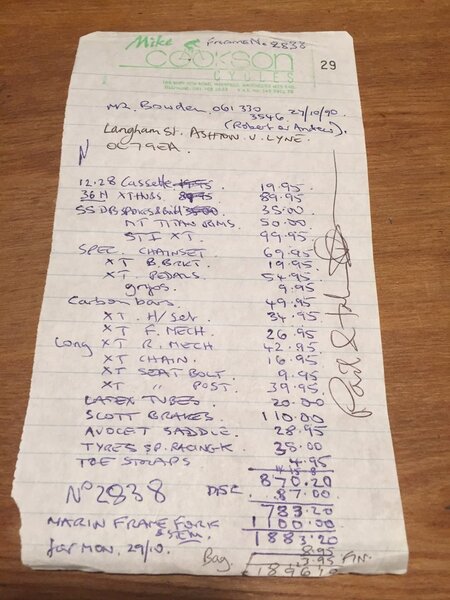 Mike
FRAME No 2838
COOKSON
CYCLES
29
MR. Bowden. 061 330
3546 27/10/90
(Robert or Andrew).
Langham St. ASHTON U. LYNE.
N OL79EA.
12.28 Cassette 19.95 19.95
36H XT HUBS 89.95 89.95
SS DB spokes & build 35.00 35.00
MT TITAN RIMS 50.00
STI XT. 99.95
SPEC. CHAINSET 69.95
XT B BRKT. 19.95
XT PEDALS 54.95
grips 9.95
Carbon bars. 49.95
XT H/Set. 34.95
XT F. MECH. 26.95
Long XT R. MECH. 42.95
XT CHAIN. 16.95
XT SEAT BOLT. 9.95
XT " POST. 39.95
LATEX TUBES. 20.00
SCOTT BRAKES. 110.00
AVOCET SADDLE. 28.95
TYRES SP. RACING-K. 35.00
TOE STRAPS 4.95
870.20
No 2838 DISC 87.00
783.20
MARIN FRAME FORK 1100.00
& STEM. 1883.20
for MON. 29/10. Bag. 8.95
3.95 FIN.
1896.10
Paid &